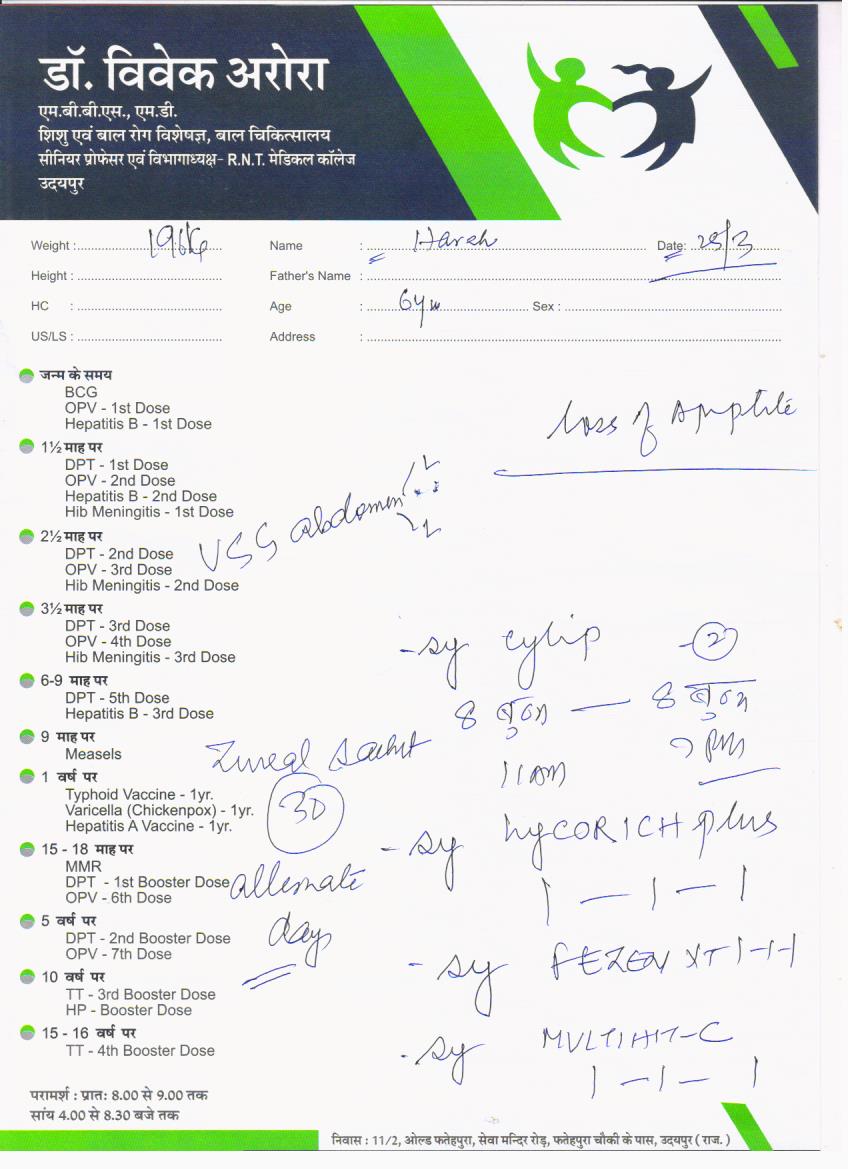 डॉ. विवेक अरोरा
एम.बी.बी.एस., एम.डी.
शिशु एवं बाल रोग विशेषज्ञ, बाल चिकित्सालय
सीनियर प्रोफेसर एवं विभागाध्यक्ष- R.N.T. मेडिकल कॉलेज
उदयपुर
Weight : Name : Harsh Date: 25/3
Height : Father's Name :
HC : Age : 6yr Sex :
US/LS : Address :
जन्म के समय
BCG
OPV - 1st Dose
Hepatitis B - 1st Dose
Loss of Appetite
1½ माह पर
DPT - 1st Dose
OPV - 2nd Dose
Hepatitis B - 2nd Dose
Hib Meningitis - 1st Dose
USG abdomen
2½ माह पर
DPT - 2nd Dose
OPV - 3rd Dose
Hib Meningitis - 2nd Dose
3½ माह पर
DPT - 3rd Dose
OPV - 4th Dose
Hib Meningitis - 3rd Dose
- sy cylip - 2
6-9 माह पर
DPT - 5th Dose
Hepatitis B - 3rd Dose
8 बून्द — 8 बून्द
11AM 9 PM
9 माह पर
Measels
sachet
30
alternate
day
1 वर्ष पर
Typhoid Vaccine - 1yr.
Varicella (Chickenpox) - 1yr.
Hepatitis A Vaccine - 1yr.
- sy hyCORICH plus
1 — 1 — 1
15 - 18 माह पर
MMR
DPT - 1st Booster Dose
OPV - 6th Dose
5 वर्ष पर
DPT - 2nd Booster Dose
OPV - 7th Dose
- sy XT 1-1-1
10 वर्ष पर
TT - 3rd Booster Dose
HP - Booster Dose
15 - 16 वर्ष पर
TT - 4th Booster Dose
- sy MULTIHIT-C
1 - 1 - 1
परामर्श : प्रात: 8.00 से 9.00 तक
सांय 4.00 से 8.30 बजे तक
निवास : 11/2, ओल्ड फतेहपुरा, सेवा मन्दिर रोड़, फतेहपुरा चौकी के पास, उदयपुर ( राज. )